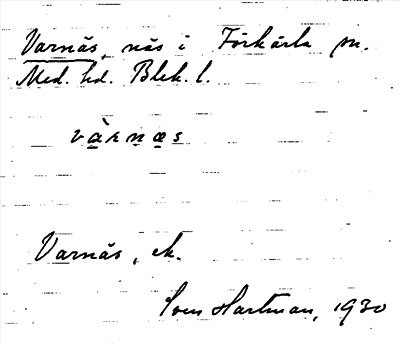 Varnäs, näs i Förkärla sn.
Med. hd. Blek. l.
vàrnæs
Varnäs, ek.
Sven Hartman, 1930